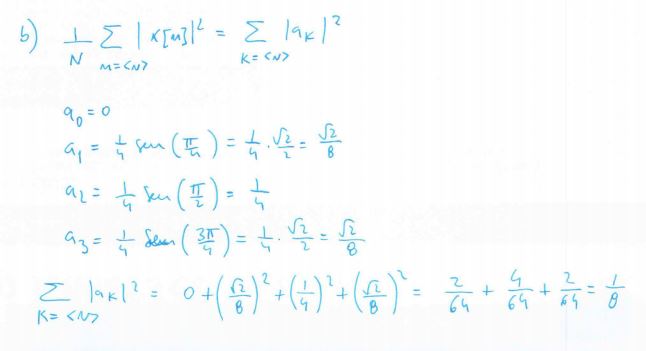 b) 1/N Σ_{n=<N>} |x[n]|² = Σ_{K=<N>} |a_K|²
a_0 = 0
a_1 = 1/4 sen(π/4) = 1/4 · √2/2 = √2/8
a_2 = 1/4 sen(π/2) = 1/4
a_3 = 1/4 sen(3π/4) = 1/4 · √2/2 = √2/8
Σ_{K=<N>} |a_K|² = 0 + (√2/8)² + (1/4)² + (√2/8)² = 2/64 + 4/64 + 2/64 = 1/8